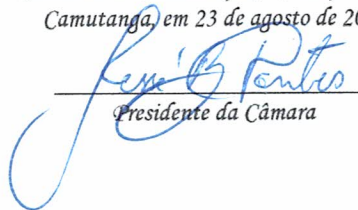 Camutanga, em 23 de agosto de 20
Presidente da Câmara